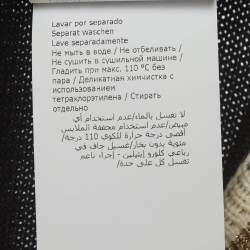 Lavar por separado
Separat waschen
Lave separadamente
Не мыть в воде / Не отбеливать /
Не сушить в сушильной машине /
Гладить при макс. 110 ºC без
пара / Деликатная химчистка с
использованием
тетрахлорэтилена / Стирать
отдельно
لا تغسل بالماء/عدم استخدام أي
مبيض/عدم استخدام مجففة الملابس
أقصى درجة حرارة للكوي 110 درجة/
مئوية بدون بخار/غسيل جاف في
رباعي كلورو إيثيلين - إجراء ناعم
تغسل كل على حدة/